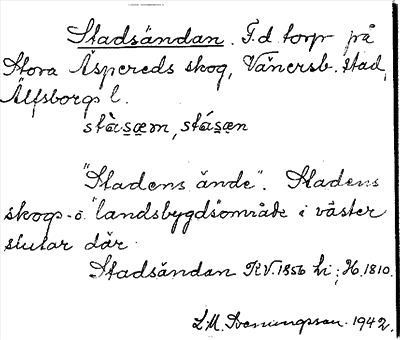 Stadsändan. F.d. torp på
Stora Äspereds skog, Vänersb. stad,
Älfsborgs l.
stàsæn, stásæn
"Stadens ände". Stadens
skogs- o. "landsbygds"område i väster
slutar där.
Stadsändan RV. 1856 hi; H. 1810.
L.M. Svenungsson. 1942.